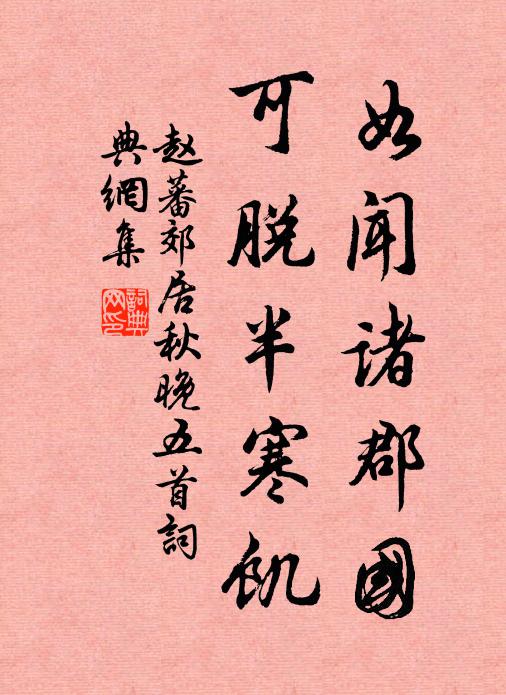 如闻诸郡國
可脱半寒飢
赵蕃郊居秋晚五首詞
典網集
詞典网印